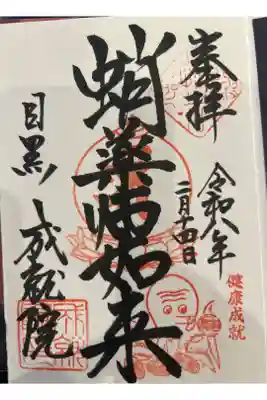 奉拝
令和八年
二月十四日
健康成就
蛸薬師如来
目黒
成就院